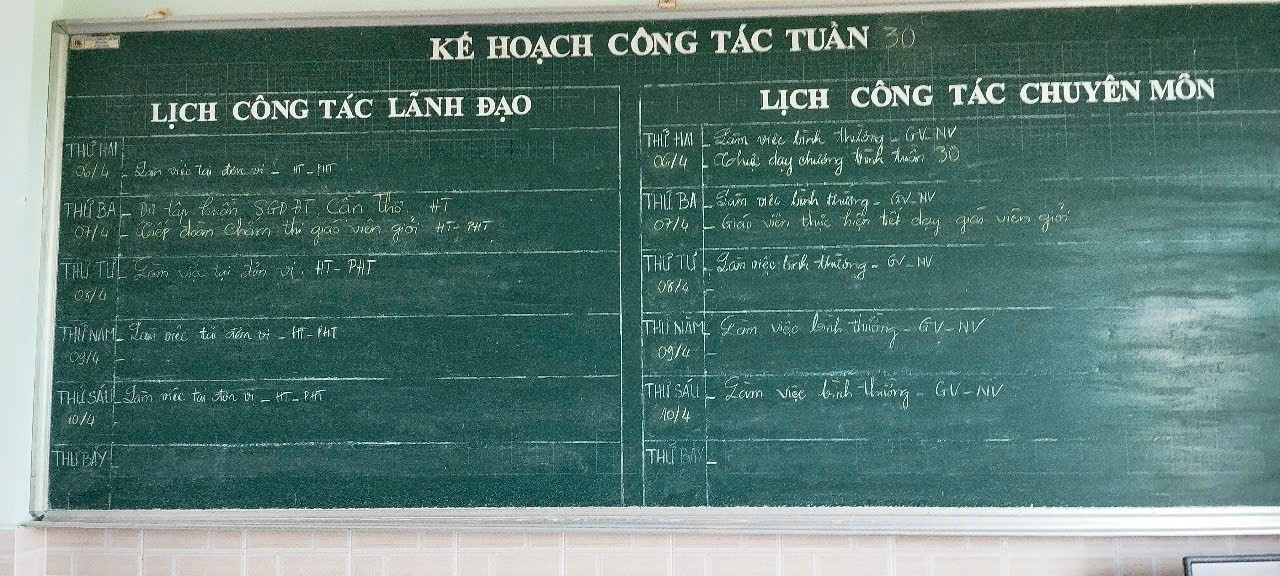 KẾ HOẠCH CÔNG TÁC TUẦN 30
LỊCH CÔNG TÁC LÃNH ĐẠO
THỨ HAI
06/4 - Làm việc tại đơn vị - HT - PHT
THỨ BA - Dự tập huấn SGDĐT Cần Thơ. HT
07/4 - Tiếp đoàn chấm thi giáo viên giỏi HT - PHT
THỨ TƯ - Làm việc tại đơn vị. HT - PHT
08/4
THỨ NĂM - Làm việc tại đơn vị - HT - PHT
09/4 -
THỨ SÁU - Làm việc tại đơn vị - HT - PHT
10/4
THỨ BẢY -
LỊCH CÔNG TÁC CHUYÊN MÔN
THỨ HAI - Làm việc bình thường - GV - NV
06/4 - dạy chương trình tuần 30
THỨ BA - Làm việc bình thường - GV - NV
07/4 - Giáo viên thực hiện tiết dạy giáo viên giỏi
THỨ TƯ - Làm việc bình thường - GV - NV
08/4 -
THỨ NĂM - Làm việc bình thường - GV - NV
09/4 -
THỨ SÁU - Làm việc bình thường - GV - NV
10/4
THỨ BẢY -